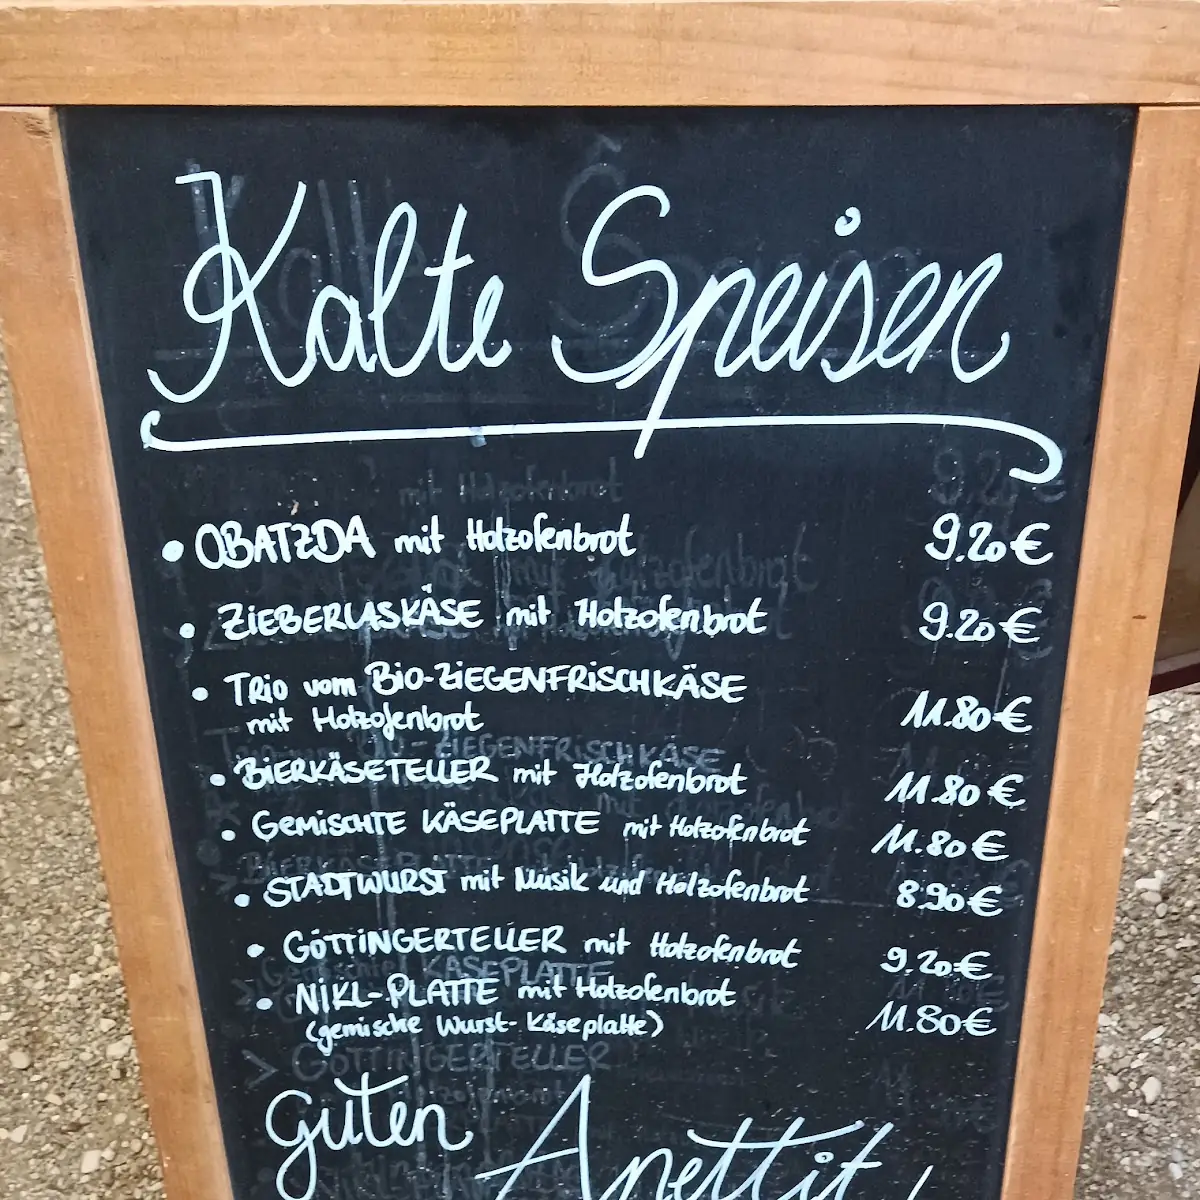 Kalte Speisen
• OBATZDA mit Holzofenbrot 9.20€
• ZIEBERLASKÄSE mit Holzofenbrot 9.20€
• TRIO vom BIO-ZIEGENFRISCHKÄSE 11.80€
mit Holzofenbrot
• BIERKÄSETELLER mit Holzofenbrot 11.80€
• GEMISCHTE KÄSEPLATTE mit Holzofenbrot 11.80€
• STADTWURST mit Musik und Holzofenbrot 8.90€
• GÖTTINGERTELLER mit Holzofenbrot 9.20€
• NIKL-PLATTE mit Holzofenbrot 11.80€
(gemische Wurst-Käseplatte)
guten
Apettit!